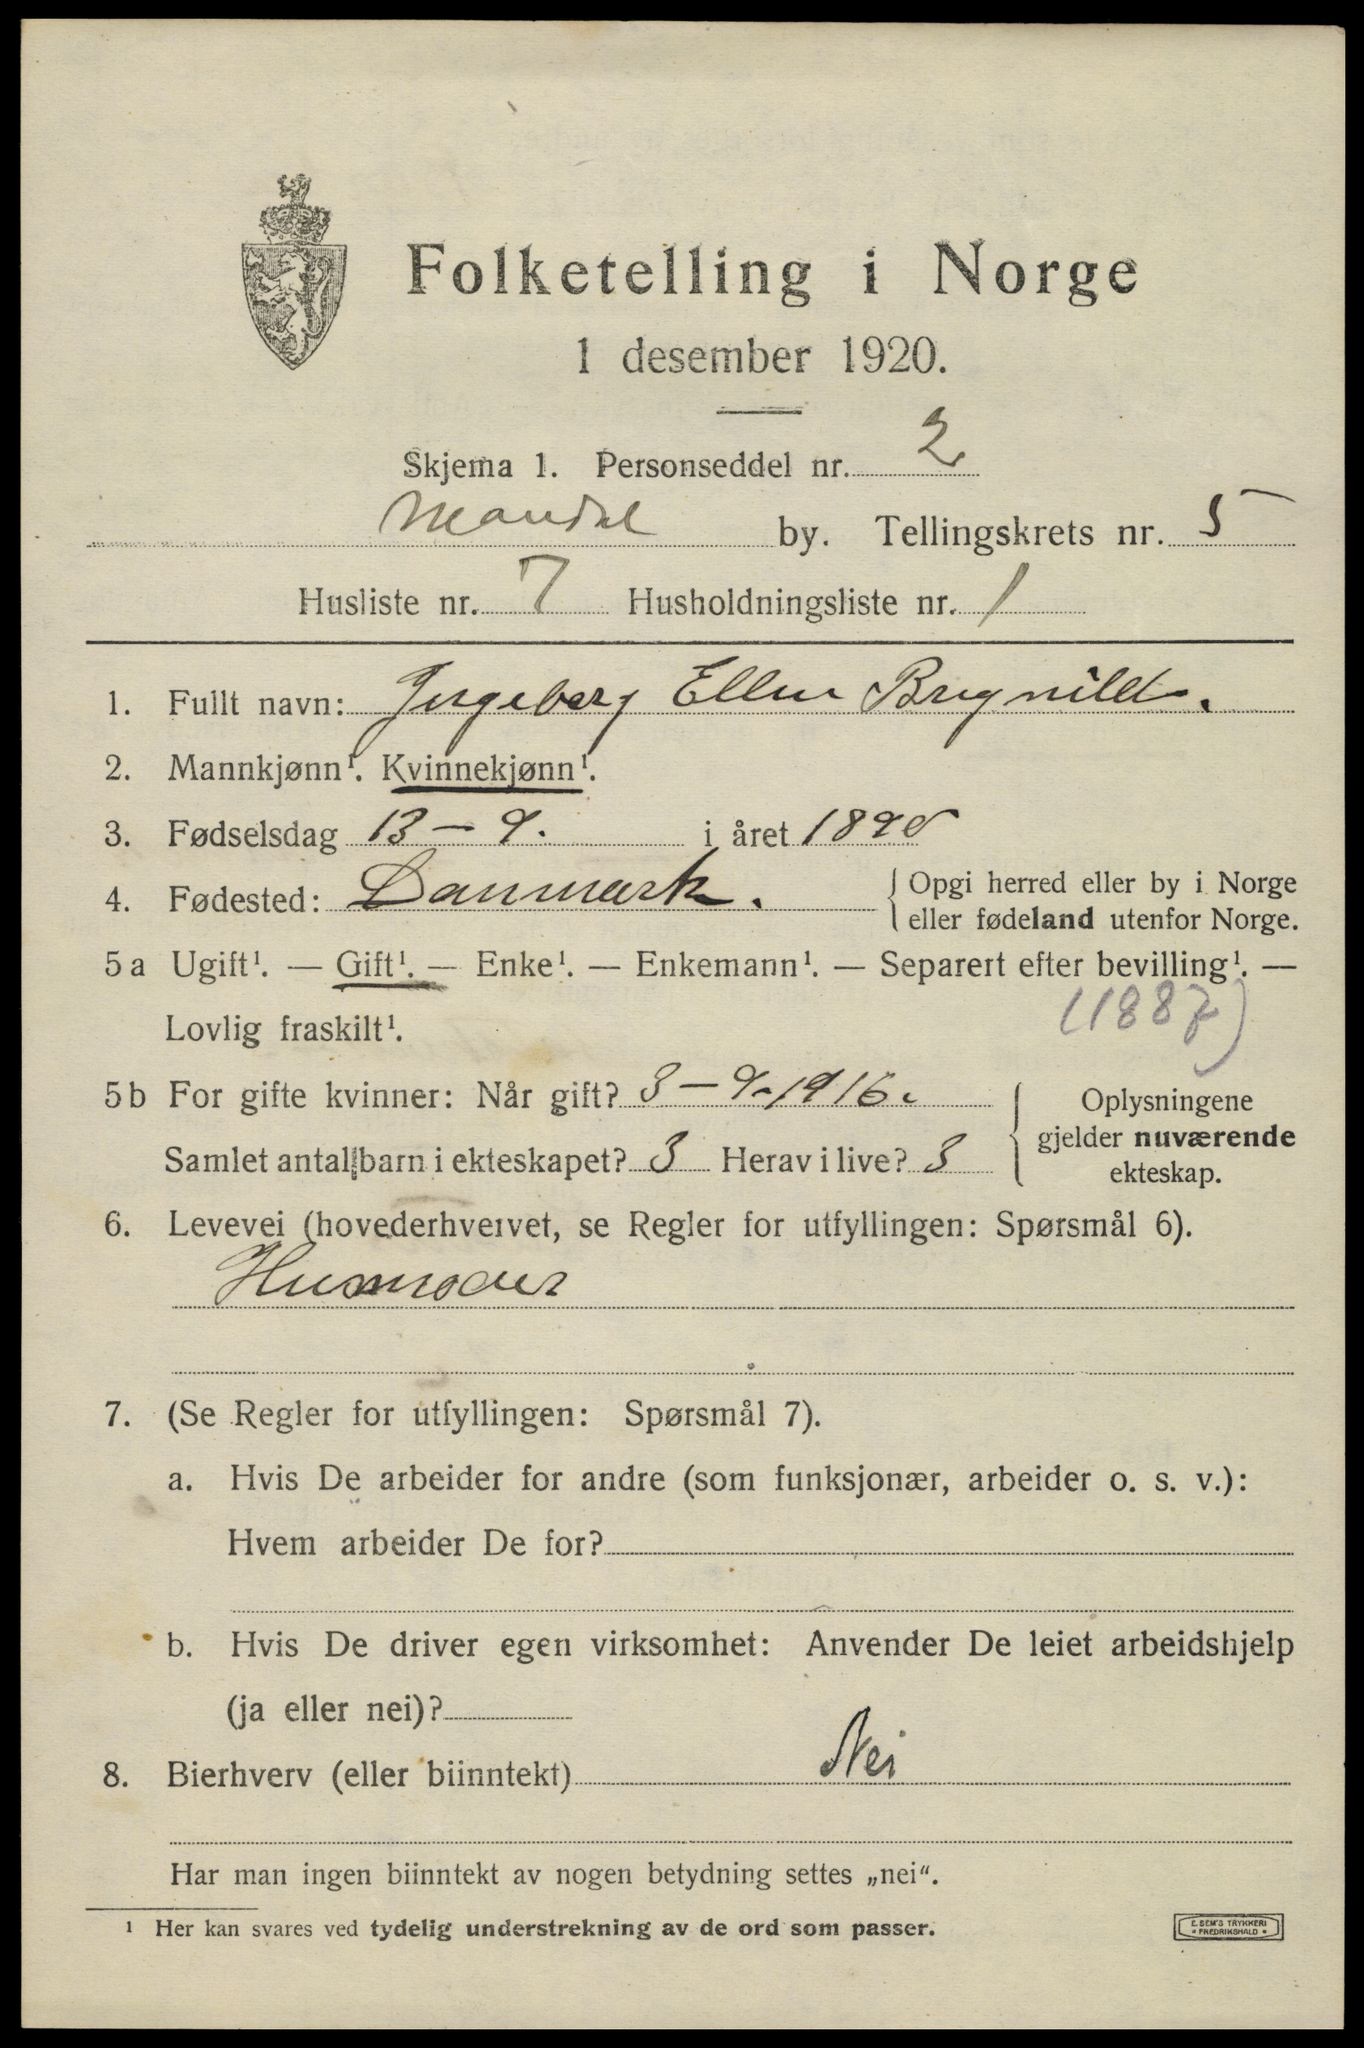 Folketelling i Norge
1 desember 1920.
Skjema 1. Personseddel nr. 2
Mandal by. Tellingskrets nr. 5
Husliste nr. 7 Husholdningsliste nr. 1
1. Fullt navn: Ingeborg Ellen Brynild.
2. Mannkjønn¹. Kvinnekjønn¹.
3. Fødselsdag 13 – 9. i året 1890
4. Fødested: Danmark. { Opgi herred eller by i Norge
eller fødeland utenfor Norge.
5 a Ugift¹. — Gift¹. — Enke¹. — Enkemann¹. — Separert efter bevilling¹. —
Lovlig fraskilt¹.
(1887)
5 b For gifte kvinner: Når gift? 3 – 9 - 1916.
Samlet antal barn i ekteskapet? 3 Herav i live? 3
Oplysningene
gjelder nuværende
ekteskap.
6. Levevei (hovederhvervet, se Regler for utfyllingen: Spørsmål 6).
Husmoder
7. (Se Regler for utfyllingen: Spørsmål 7).
a. Hvis De arbeider for andre (som funksjonær, arbeider o. s. v.):
Hvem arbeider De for?
b. Hvis De driver egen virksomhet: Anvender De leiet arbeidshjelp
(ja eller nei)?
8. Bierhverv (eller biinntekt) Nei
Har man ingen biinntekt av nogen betydning settes „nei“.
¹ Her kan svares ved tydelig understrekning av de ord som passer.
E. SEM'S TRYKKERI
FREDRIKSHALD